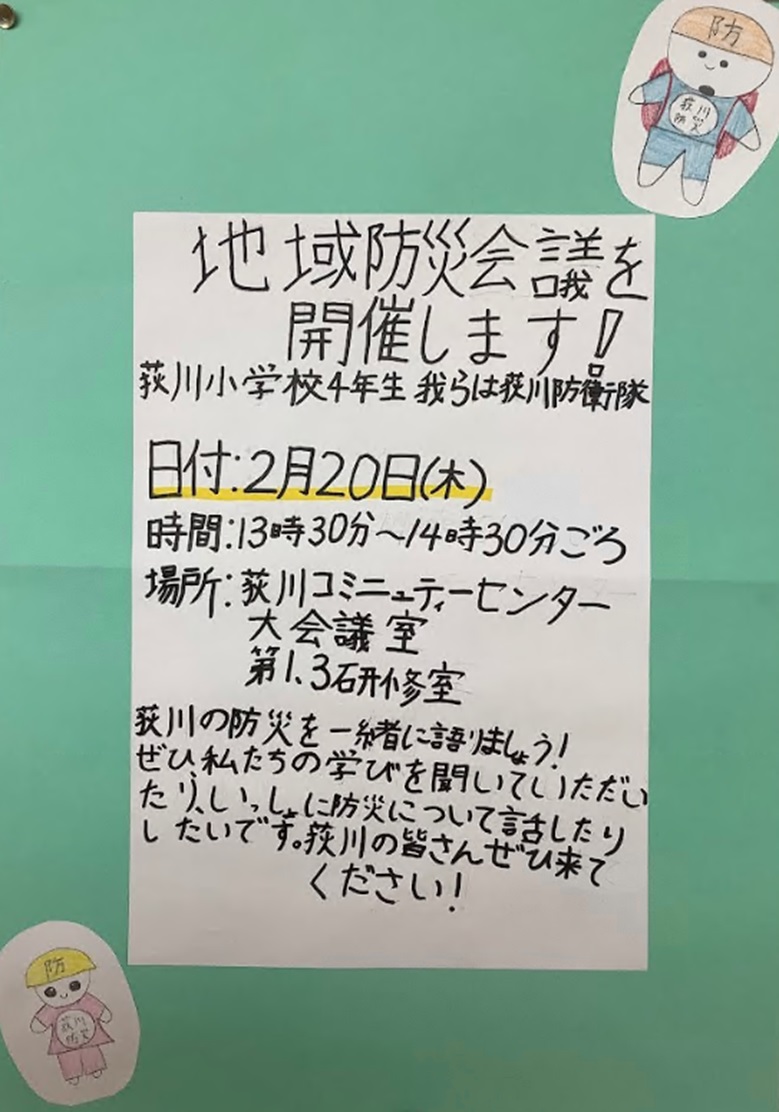 防
荻川
防災
地域防災会議を
開催します!
荻川小学校4年生 我らは荻川防衛隊
日付:2月20日(木)
時間:13時30分～14時30分ごろ
場所:荻川コミニュティーセンター
大会議室
第1.3研修室
荻川の防災を一緒に語りましょう!
ぜひ私たちの学びを聞いていただい
たり、いっしょに防災について話したり
したいです。荻川の皆さんぜひ来て
ください!
防
荻川
防災